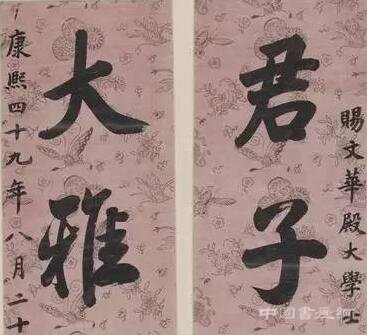 賜文華殿大學士
君子
大雅
康熙四十九年八月二十
中國書畫網